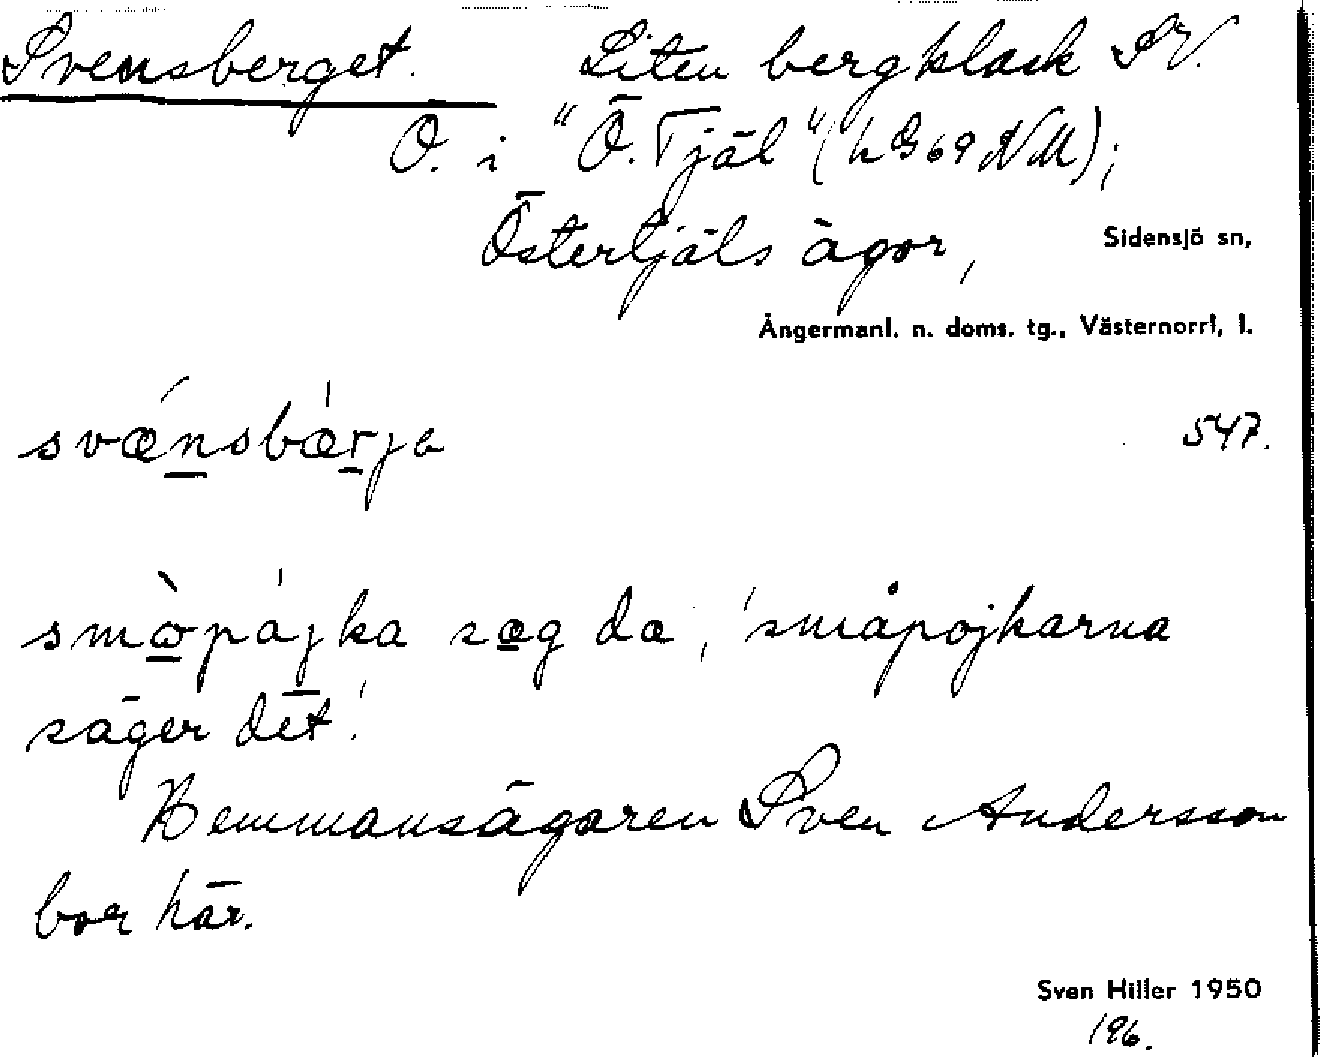 Svensberget. Liten bergklack SV.
O. i "Ö. Tjäl" (h G 69 NM);
Östertjäls ägor,
Sidensjö sn,
Ångermanl. n. doms. tg., Västernorrl, l.
svǽnsbærja
547.
smòpájka sæg dæ, 'småpojkarna
säger det'.
Hemmansägaren Sven Andersson
bor här.
Sven Hiller 1950
196.